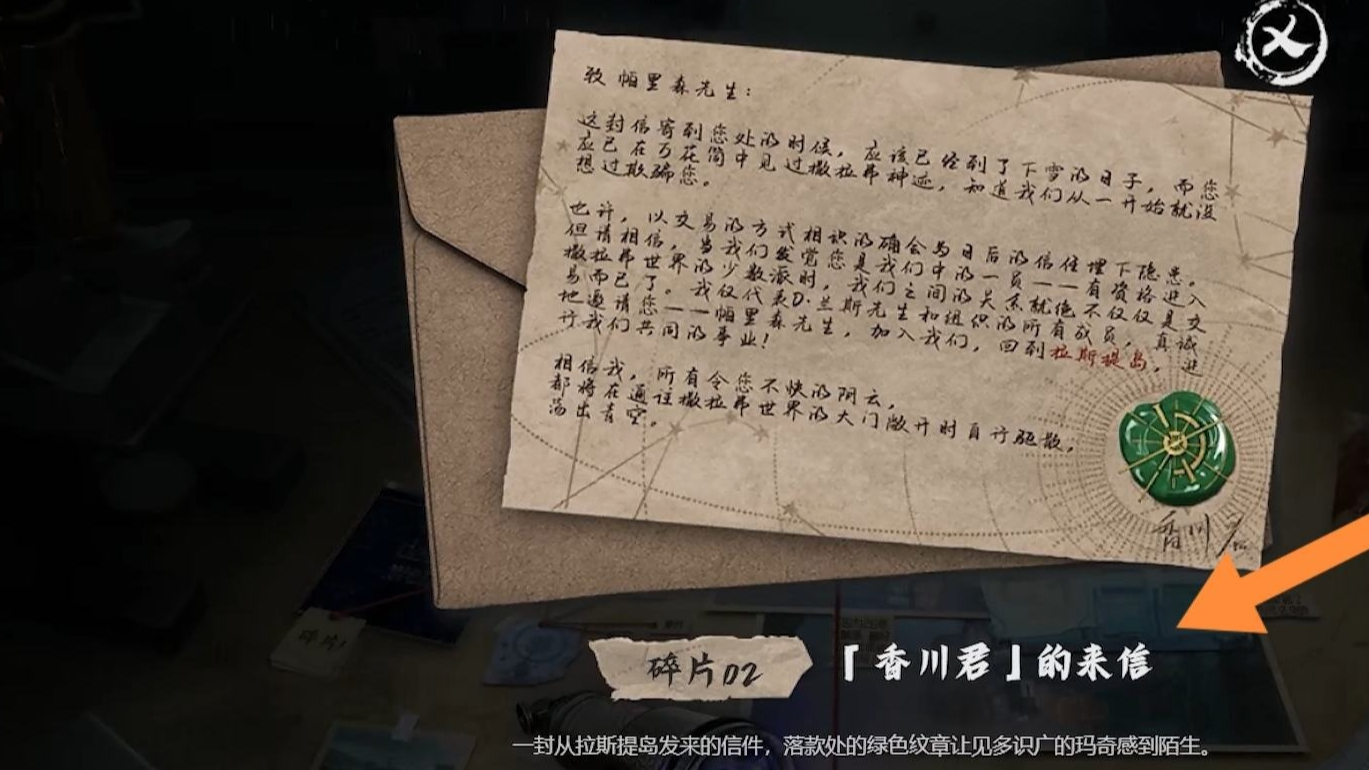 致帕里森先生：
这封信寄到您处的时候，应该已经到了下雪的日子，而您
应已在万花筒中见过撒拉弗神迹，知道我们从一开始就没
想过欺骗您。
也许，以交易的方式相识的确会为日后的信任埋下隐患。
但请相信，当我们发觉您是我们中的一员——有资格进入
撒拉弗世界的少数派时，我们之间的关系就绝不仅仅是交
易而已了。我仅代表D·兰斯先生和组织的所有成员，真诚
地邀请您——帕里森先生，加入我们，回到拉斯提岛，进
行我们共同的事业！
相信我，所有令您不快的阴云，
都将在通往撒拉弗世界的大门敞开时自行驱散，
荡出青空。
香川
碎片02
「香川君」的来信
一封从拉斯提岛发来的信件，落款处的绿色纹章让见多识广的玛奇感到陌生。
碎片1